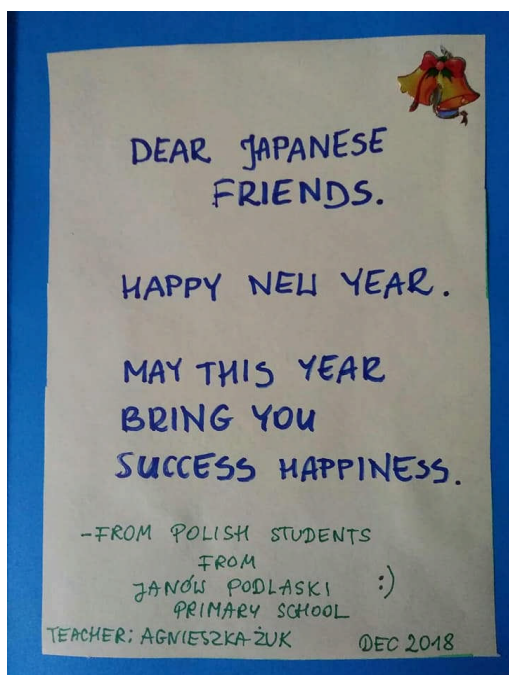 DEAR JAPANESE
FRIENDS.
HAPPY NEW YEAR.
MAY THIS YEAR
BRING YOU
SUCCESS HAPPINESS.
-FROM POLISH STUDENTS
FROM
JANÓW PODLASKI :)
PRIMARY SCHOOL
TEACHER: AGNIESZKA ŻUK DEC 2018